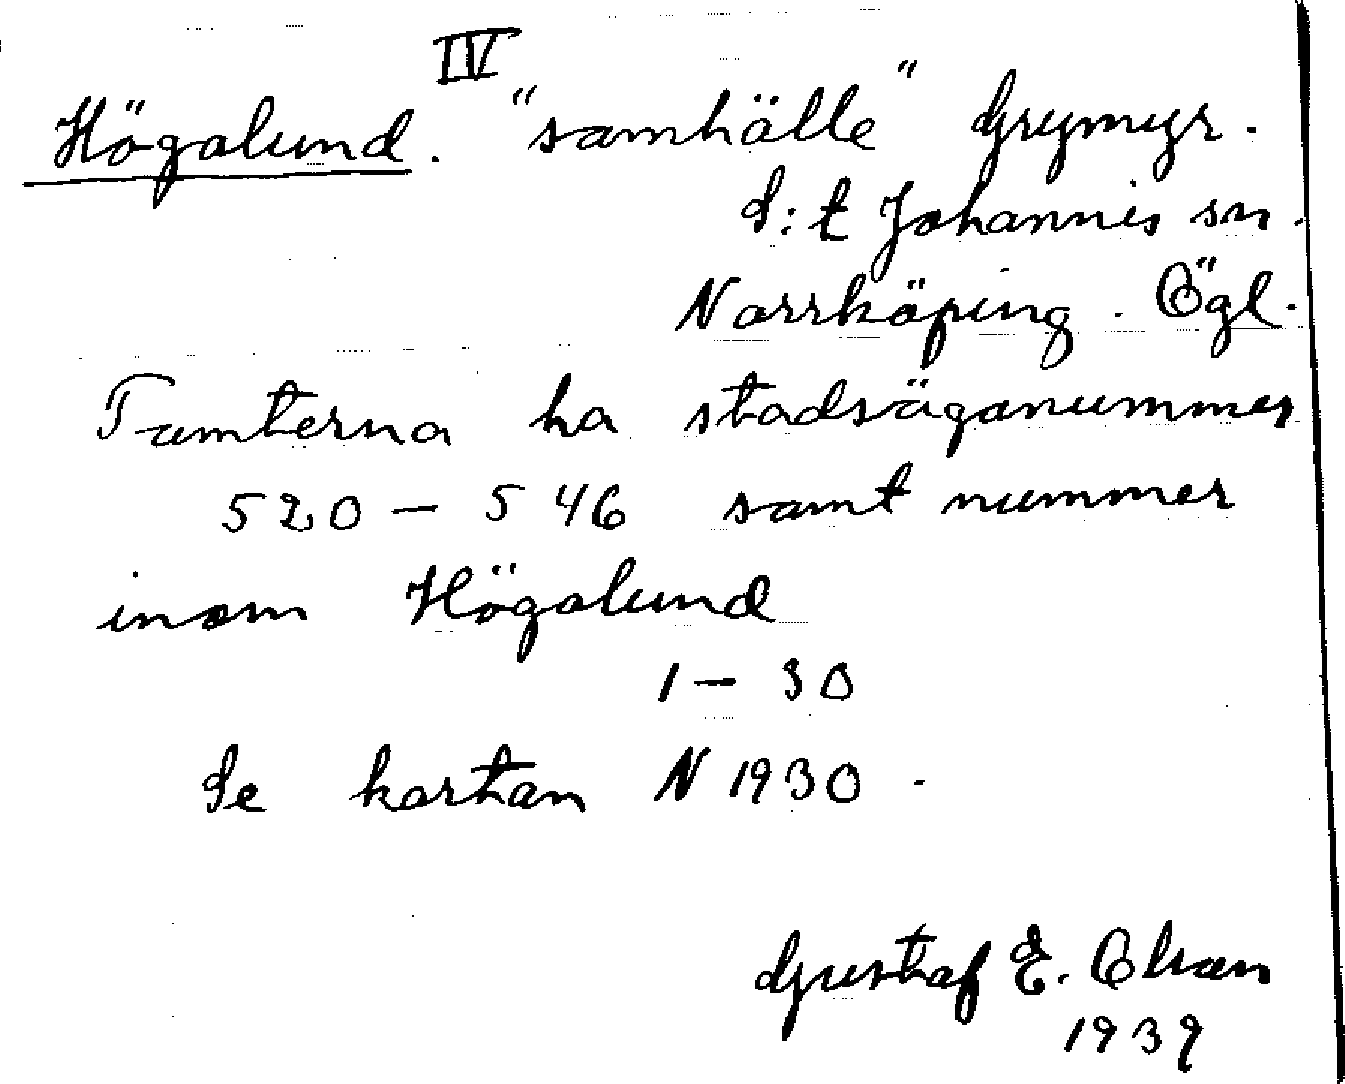 IV
Högalund. "samhälle" Grymyr.
S:t Johannis sn.
Norrköping. Ögl.
Tomterna ha stadsäganummer
520 – 546 samt nummer
inom Högalund
1 – 30
Se kartan N 1930.
Gustaf E. Olsson
1939